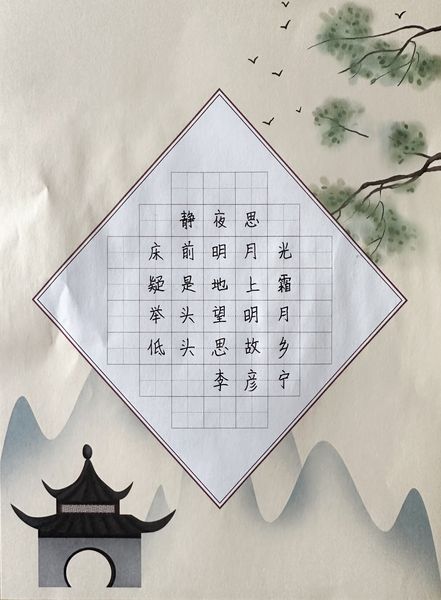 静夜思
床前明月光
疑是地上霜
举头望明月
低头思故乡
李彦宁